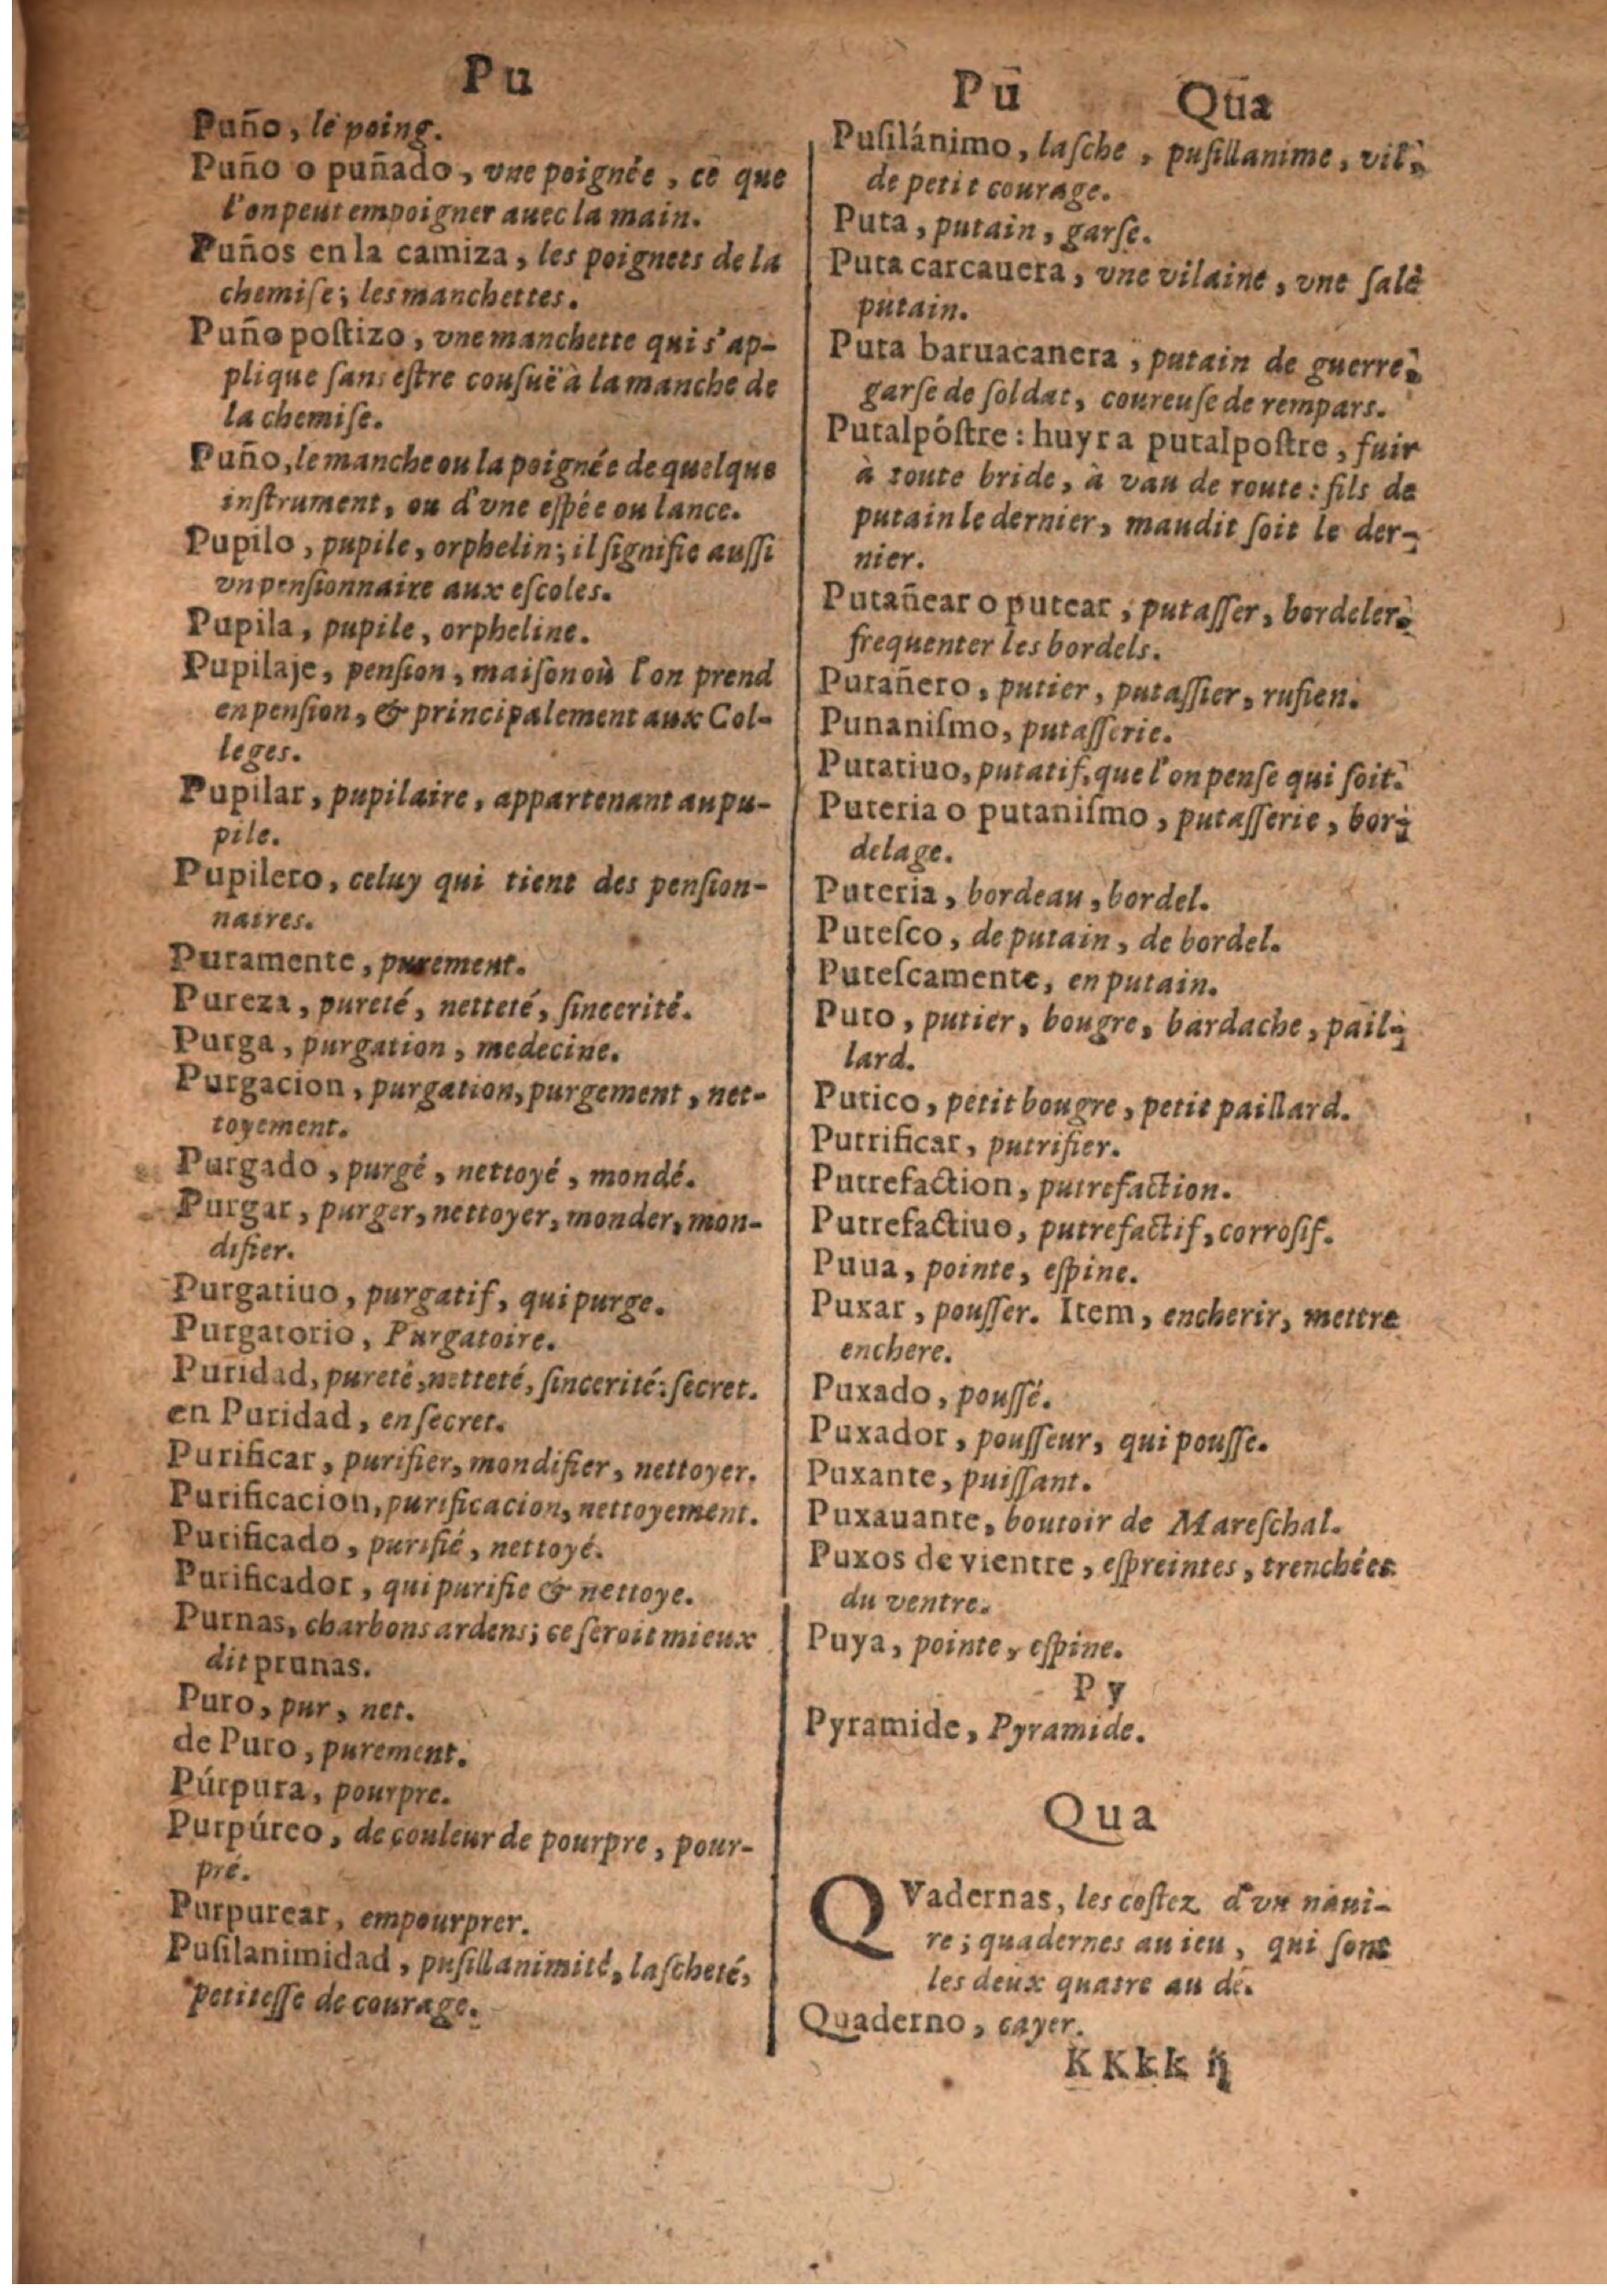 Pu
Puño, le poing.
Puño o puñado, vne poignée, ce que
l'on peut empoigner auec la main.
Puños en la camiza, les poignets de la
chemiſe; les manchettes.
Puño poſtizo, vne manchette qui s'ap-
plique ſans eſtre couſuë à la manche de
la chemiſe.
Puño, le manche ou la poignée de quelque
inſtrument, ou d'vne eſpée ou lance.
Pupilo, pupile, orphelin; il ſignifie auſſi
vn penſionnaire aux eſcoles.
Pupila, pupile, orpheline.
Pupilaje, penſion, maiſon où l'on prend
en penſion, & principalement aux Col-
leges.
Pupilar, pupilaire, appartenant au pu-
pile.
Pupilero, celuy qui tient des penſion-
naires.
Puramente, purement.
Pureza, pureté, netteté, ſincerité.
Purga, purgation, medecine.
Purgacion, purgation, purgement, net-
toyement.
Purgado, purgé, nettoyé, mondé.
Purgar, purger, nettoyer, monder, mon-
difier.
Purgatiuo, purgatif, qui purge.
Purgatorio, Purgatoire.
Puridad, pureté, netteté, ſincerité: ſecret.
en Puridad, en ſecret.
Purificar, purifier, mondifier, nettoyer.
Purificacion, purificacion, nettoyement.
Purificado, purifié, nettoyé.
Purificador, qui purifie & nettoye.
Purnas, charbons ardens; ce ſeroit mieux
dit prunas.
Puro, pur, net.
de Puro, purement.
Púrpura, pourpre.
Purpúreo, de couleur de pourpre, pour-
pré.
Purpurear, empourprer.
Puſilanimidad, puſillanimité, laſcheté,
petiteſſe de courage.
Pu Qua
Puſilánimo, laſche, puſillanime, vil,
de petit courage.
Puta, putain, garſe.
Puta carcauera, vne vilaine, vne ſale
putain.
Puta baruacanera, putain de guerre,
garſe de ſoldat, coureuſe de rempars.
Putalpóſtre: huyr a putalpoſtre, fuir
à toute bride, à vau de route: fils de
putain le dernier, maudit ſoit le der-
nier.
Putañear o putear, putaſſer, bordeler,
frequenter les bordels.
Putañero, putier, putaſſier, rufien.
Punaniſmo, putaſſerie.
Putatiuo, putatif, que l'on penſe qui ſoit.
Puteria o putaniſmo, putaſſerie, bor-
delage.
Puteria, bordeau, bordel.
Puteſco, de putain, de bordel.
Puteſcamente, en putain.
Puto, putier, bougre, bardache, pail-
lard.
Putico, petit bougre, petit paillard.
Putrificar, putrifier.
Putrefaction, putrefaction.
Putrefactiuo, putrefactif, corroſif.
Puua, pointe, eſpine.
Puxar, pouſſer. Item, encherir, mettre
enchere.
Puxado, pouſſé.
Puxador, pouſſeur, qui pouſſe.
Puxante, puiſſant.
Puxauante, boutoir de Mareſchal.
Puxos de vientre, eſpreintes, trenchées
du ventre.
Puya, pointe, eſpine.
Py
Pyramide, Pyramide.
Qua
QVadernas, les coſtez d'vn naui-
re; quadernes au ieu, qui ſont
les deux quatre au dé.
Quaderno, cayer.
KKkk ij